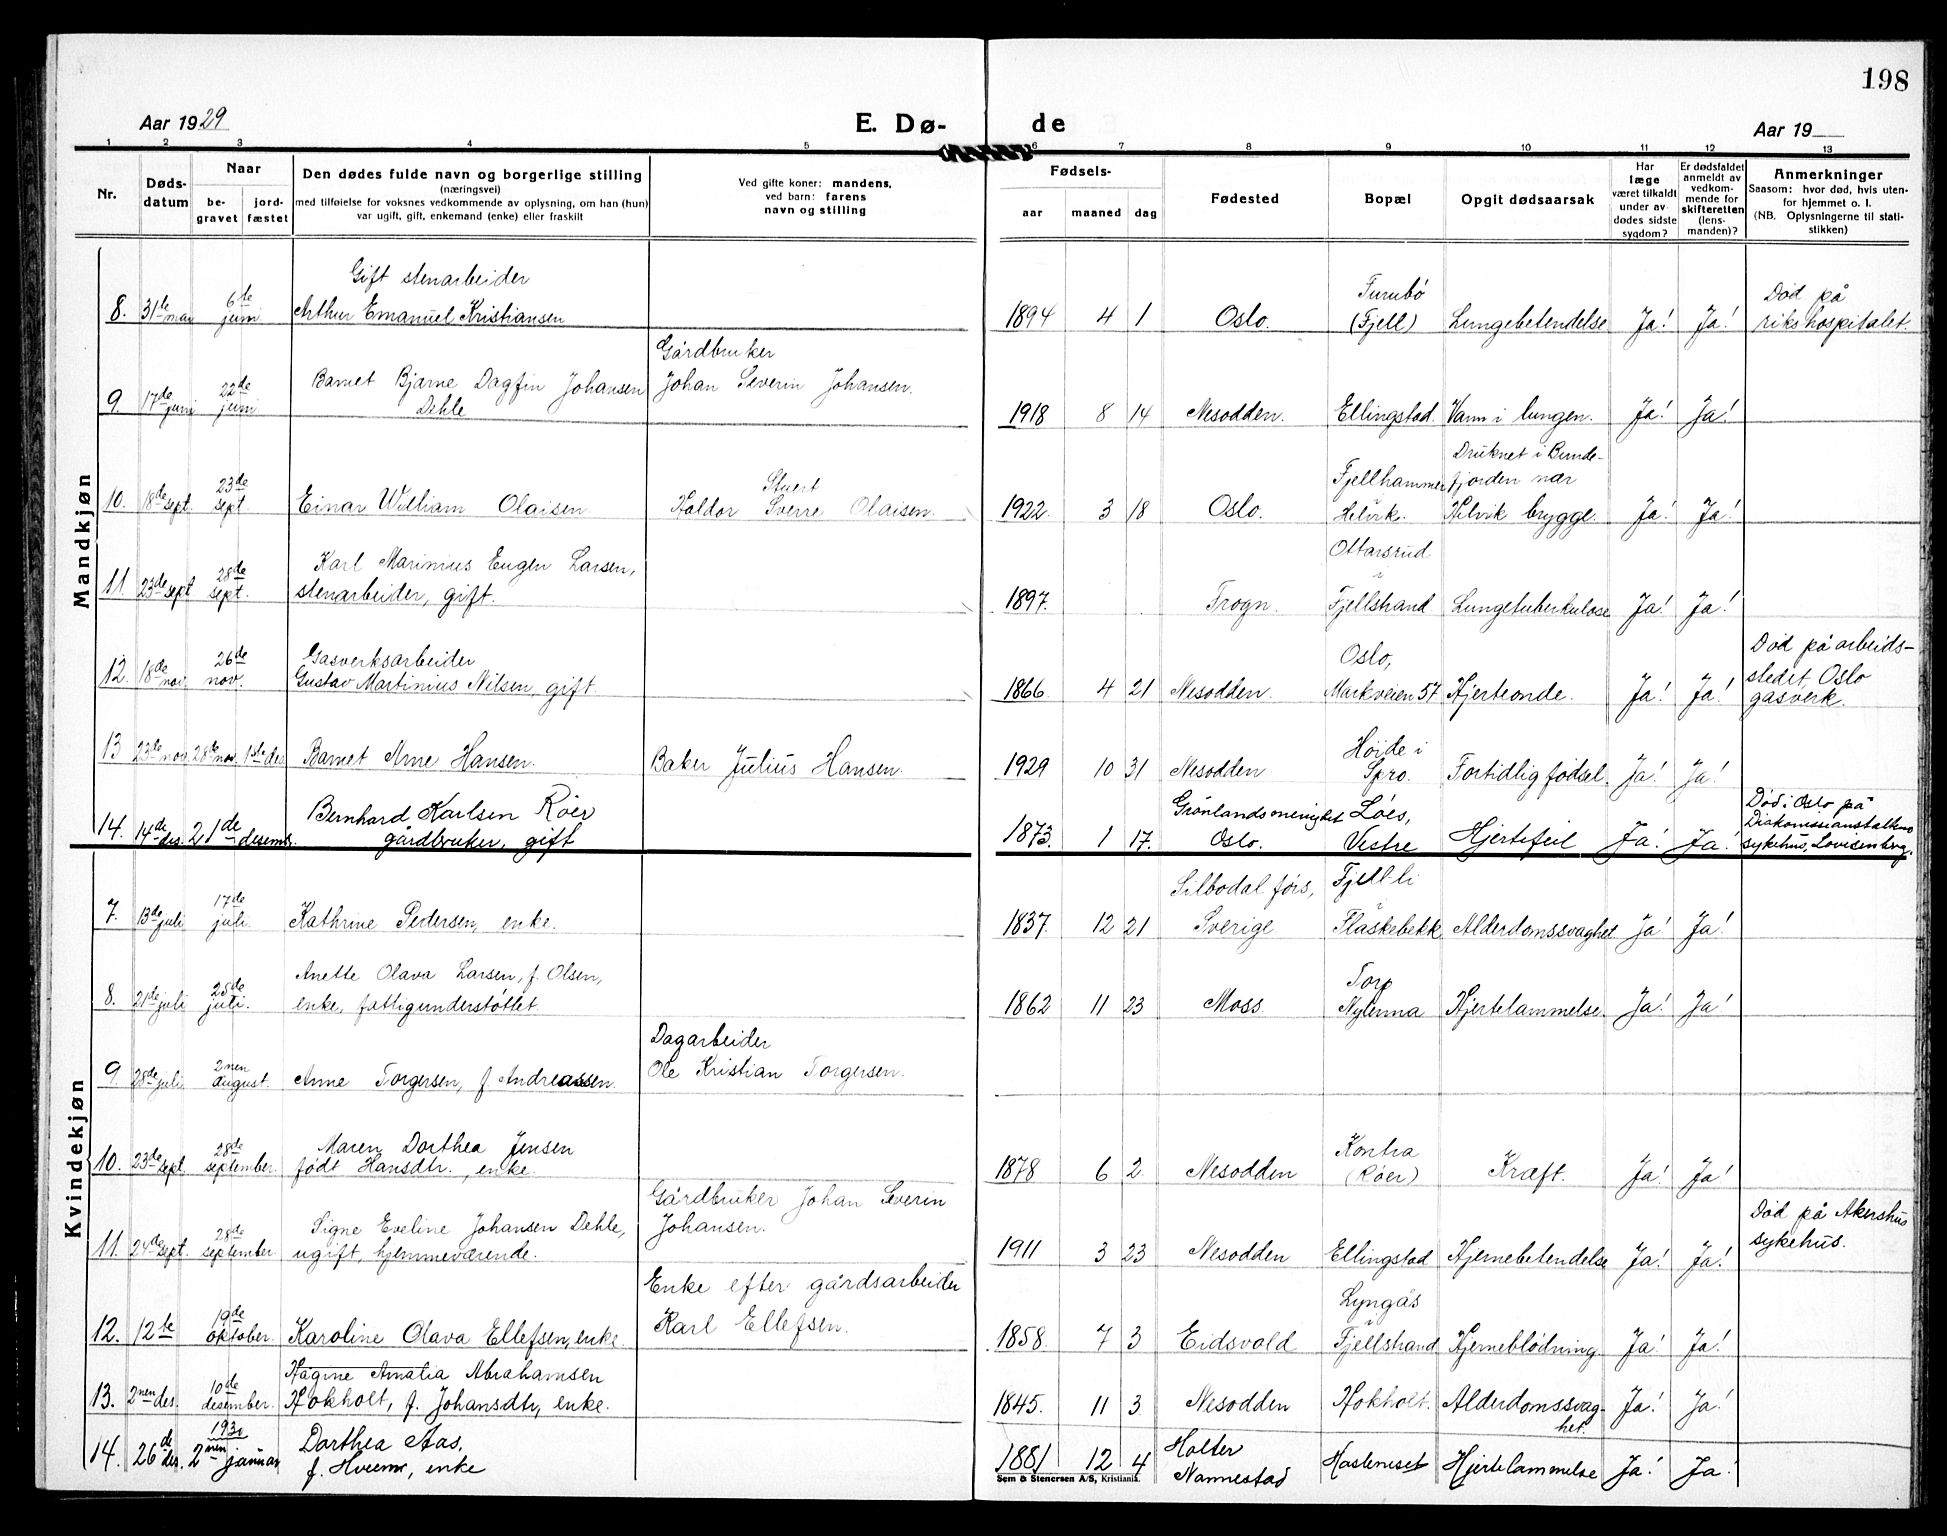 198
Aar 1929
E. Dø-
de
Aar 19
1 2 3 4 5 6 7 8 9 10 11 12 13
Nr.
Døds-
datum
Naar
be-
gravet
jord-
fæstet
Den dødes fulde navn og borgerlige stilling
(næringsvei)
med tilføielse for voksnes vedkommende av oplysning, om han (hun)
var ugift, gift, enkemand (enke) eller fraskilt
Ved gifte koner: mandens,
ved barn: farens
navn og stilling
Fødsels-
aar
maaned
dag
Fødested
Bopæl
Opgit dødsaarsak
Har
læge
været tilkaldt
under av-
dødes sidste
sygdom?
Er dødsfaldet
anmeldt av
vedkom-
mende for
skifteretten
(lens-
manden)?
Anmerkninger
Saasom: hvor død, hvis uten-
for hjemmet o. l.
(NB. Oplysningerne til stati-
stikken)
Mandkjøn
8. 31te mai 6te juni
Gift stenarbeider
Arthur Emanuel Kristiansen
1894 4 1 Oslo. Furubö (Fjell) Lungebetendelse Ja! Ja!
Död på
rikshospitalet.
9. 17de juni 22de juni
Barnet Bjarne Dagfin Johansen
Dehle
Gårdbruker
Johan Severin Johansen.
1918 8 14 Nesodden. Ellingstad. Vann i lungen. Ja! Ja!
10. 18de sept. 23de sept.
Einar William Olaisen.
Stuert
Haldor Sverre Olaisen.
1922. 3 18 Oslo. Fjellhammer Helvik.
Druknet i Bunde-
fjorden nær
Helvik brygge. Ja! Ja!
11. 23de sept 28de sept.
Karl Marinius Eugen Larsen,
stenarbeider, gift.
1897. Frogn. Ottarsrud i Fjellstrand Lungetuberkulose Ja! Ja!
12. 18de nov. 26de nov.
Gasverksarbeider
Gustav Martinius Nilsen, gift.
1866 4 21 Nesodden. Oslo, Markveien 57 Hjerteonde. Ja! Ja!
Död på arbeids-
stedet, Oslo
gasverk.
13 23de nov. 28de nov. 1ste des.
Barnet Arne Hansen.
Baker Julius Hansen.
1929 10 31 Nesodden Höide i Spro. Fortidlig födsel. Ja! Ja!
14. 14de des. 21de desemb.
Bernhard Karlsen Röer
gårdbruker, gift
1873. 1 17. Grönlands menighet Oslo. Löes, Vestre Hjertefeil Ja! Ja!
Död i Oslo på
Diakonissianstaltens
sykehus, Lovisenberg.
Kvindekjøn
7. 13de juli 17de juli
Kathrine Pedersen, enke.
1837. 12 21 Silbodal förs, Sverige Fjell-li Flaskebekk Alderdomssvaghet. Ja! Ja!
8. 21de juli 25de juli.
Anette Olava Larsen, f. Olsen,
enke, fattigunderstöttet.
1862 11 23 Moss. Torp Nylenna Hjertelammelse. Ja! Ja!
9. 28de juli. 2nen august.
Anne Torgersen, f. Andreassen.
Dagarbeider
Ole Kristian Torgersen.
10. 23de sept. 28de september.
Maren Dorthea Jensen
födt Hansdtr., enke.
1878 6 2 Nesodden Kontra (Röer) Kræft. Ja! Ja!
11. 24de sept. 28de september.
Signe Eveline Johansen Dehle,
ugift, hjemmeværende.
Gårdbruker Johan Severin
Johansen.
1911 3 23 Nesodden Ellingstad Hjernebetendelse Ja! Ja!
Död på Akershus
sykehus.
12. 12te 19de oktober.
Karoline Olava Ellefsen, enke
Enke efter gårdsarbeider
Karl Ellefsen.
1858. 7 3 Eidsvold Lyngås i Fjellstrand Hjerneblödning. Ja! Ja!
13. 2nen des. 10de desember.
Hågine Amalia Abrahamsen
Hokholt, f. Johansdtr, enke.
1845. 11 3. Nesodden Hokholt. Alderdomssvag-
het. Ja! Ja!
14. 26de des. 1930 2nen januar
Dorthea Aas,
f. Hveem, enke
1881 12 4 Holter Nannestad Hasleneset Hjertelammelse Ja! Ja!
Sem & Stenersen A/S, Kristiania.